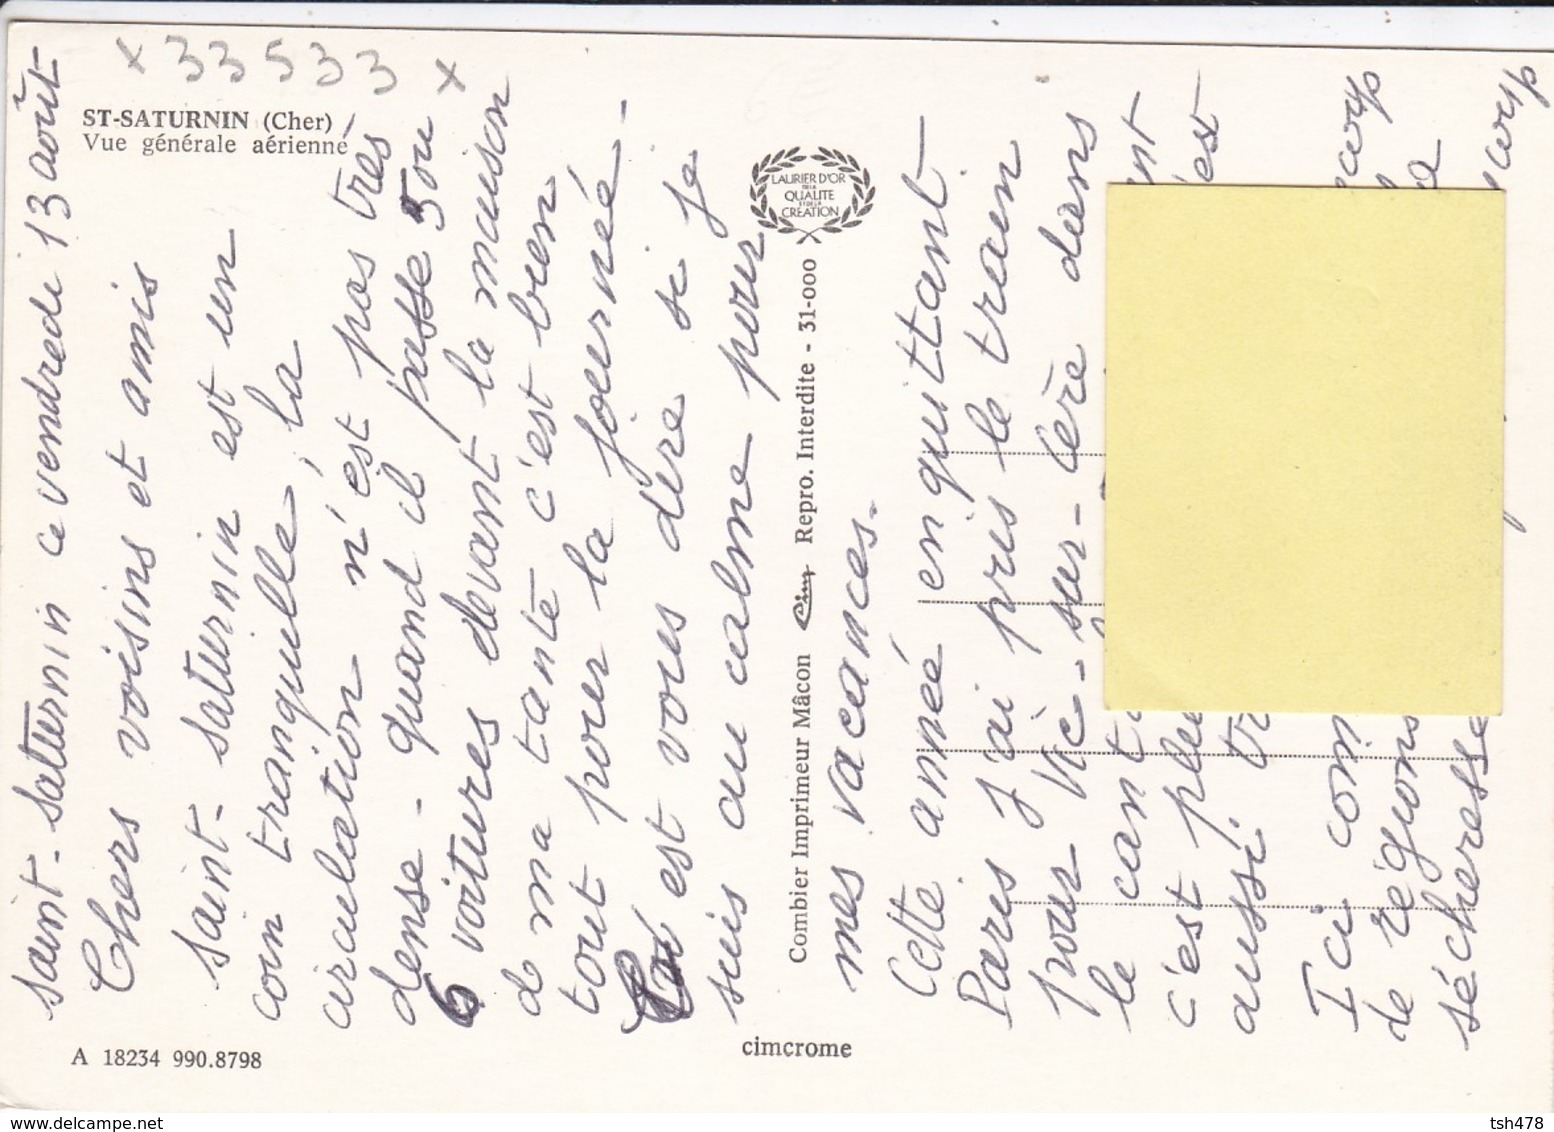 x 33533 x
ST-SATURNIN (Cher)
Vue générale aérienne
saint-saturnin ce vendredi 13 août
Chers voisins et amis
saint-saturnin est un
coin tranquille, la
circulation n'est pas très
dense - quand il passe 5 ou
6 voitures devant la maison
d ma tante c'est bien
tout pour la journée -
est vous dire si je
suis au calme pour
mes vacances.
Cette année en quittant
Paris j'ai pris le train
pour Vic-sur-Cère dans
le cant
c'est plu
aussi tr
Ici com
de régions
sécheresse
LAURIER D'OR
DE LA
QUALITE
ET DE LA
CREATION
Combier Imprimeur Mâcon Cim Repro. Interdite - 31-000
cimcrome
A 18234 990.8798
delcampe.net
tsh478